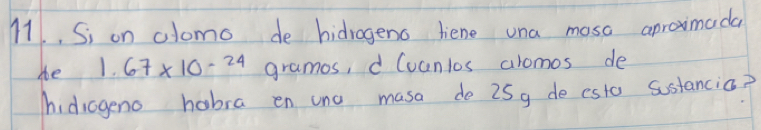 11.. Si un atomo de hidrogeno tiene una masa aproximada
de 1.67 x 10-24 gramos, ¿ Cuantos atomos de
hidrogeno habra en una masa de 25g de esta sustancia?